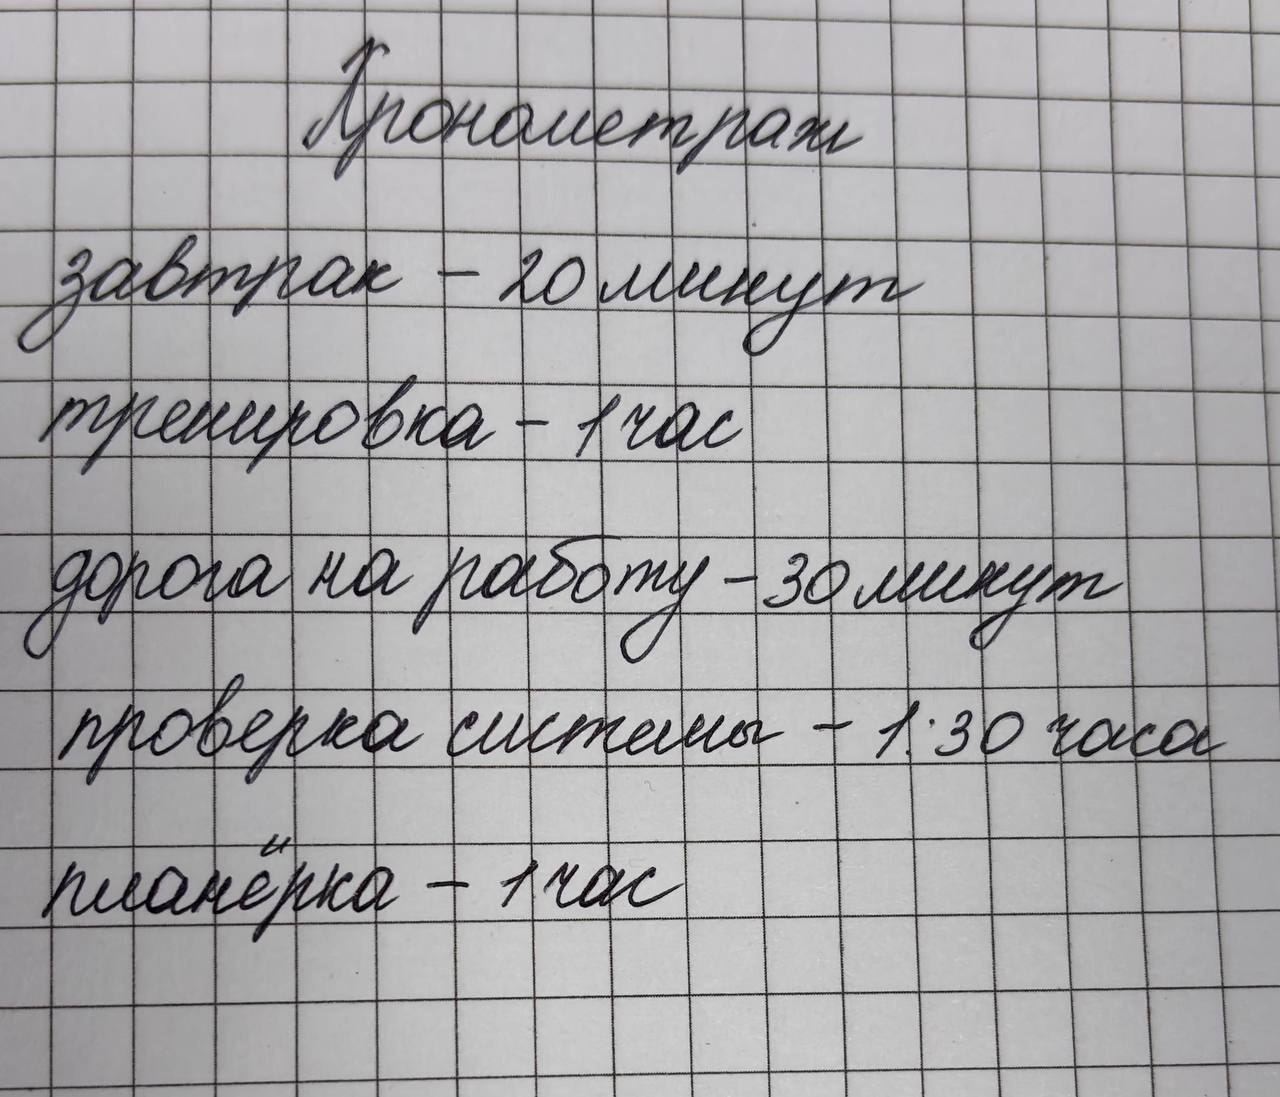 Хронометраж
завтрак - 20 минут
тренировка - 1 час
дорога на работу - 30 минут
проверка системы - 1:30 часа
планёрка - 1 час